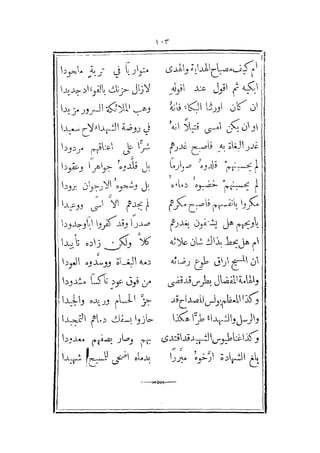 ١٠٣
ام كيف مصباح الهداية والهدى متواريًا في تربةٍ ملحودا
ابكيه ثم اقول عند اقوله لازال حزنك بالفوءاد جديدا
ان كان اورثنا البكاءَ فانهُ وهب الملائكة السرور مزيدا
او ان يكن امسى قتيلًا انهُ في روضة الشهداء لاح سعيدا
غدر البغاة بهِ فاصبح غدرهم شرًّا على اعناقهم مردودا
لم يحسبنهم قلدوهُ صوارمًا بل قلَّدوهُ جواهرًا وعقودا
لم يحسبنهم خضبوهُ دماءهُ بل وشحوهُ الارجوان برودا
مكروا بانفسهم فاصبح مكرهم لم يجدهم الَّا اسًى ووعيدا
ياويحهم هل يشتفون بغدرهم صدرًا وقد كفروا ابًا وجدودا
ام هل يحط بذاك شان علائه كلَّا ولكن زاده تأييدا
ان المسيح اراق طوع رضائه دمه البغاة ووسَّدوه العودا
والهامة المفضال بطرس قد قضى من فوق عودٍ ناكسًا مشدودا
وكذا المعظم بولس المصداح قد جزَّ الحسام وريده والجيدا
والرسل والشهداءُ طرًّا هكذا حازوا بسفك دماهم التمجيدا
وكذا اغناطيوس الشهيد قد اقتدى بهم وصار بصفهم معدودا
بلغ الشهادة ارّخوهُ مبَّررًا بدماه اضحى للمسيح شهيدا